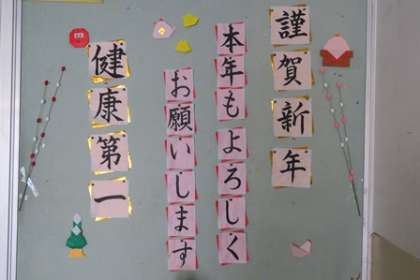 謹賀新年
本年もよろしく
お願いします
健康第一